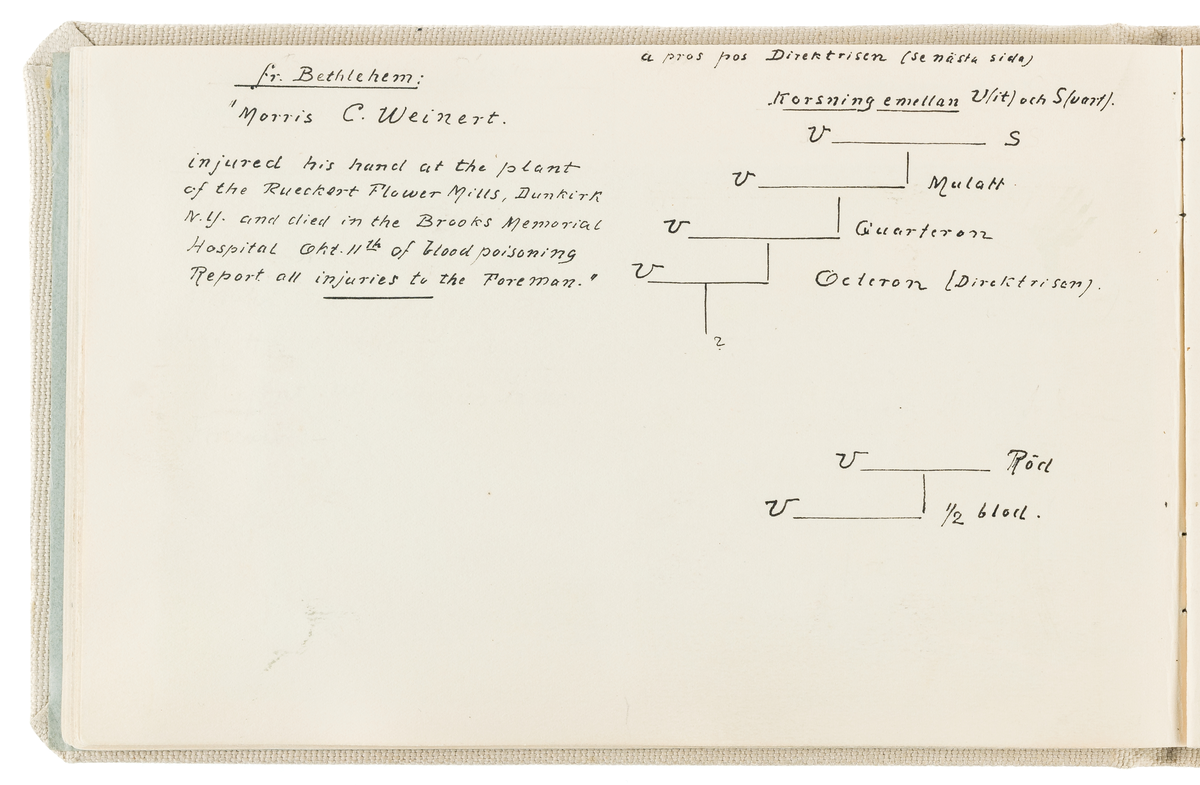 fr. Bethlehem:
"Morris C. Weinert.
injured his hand at the plant
of the Rueckert Flower Mills, Dunkirk
N.Y. and died in the Brooks Memorial
Hospital Okt. 11th of blood poisoning
Report all injuries to the Foreman."
a pros pos Direktrisen (se nästa sida)
Korsning emellan V(it) och S(vart).
V S
V Mulatt
V Quarteron
V Octeron (Direktrisen).
?
V Röd
V 1/2 blod.